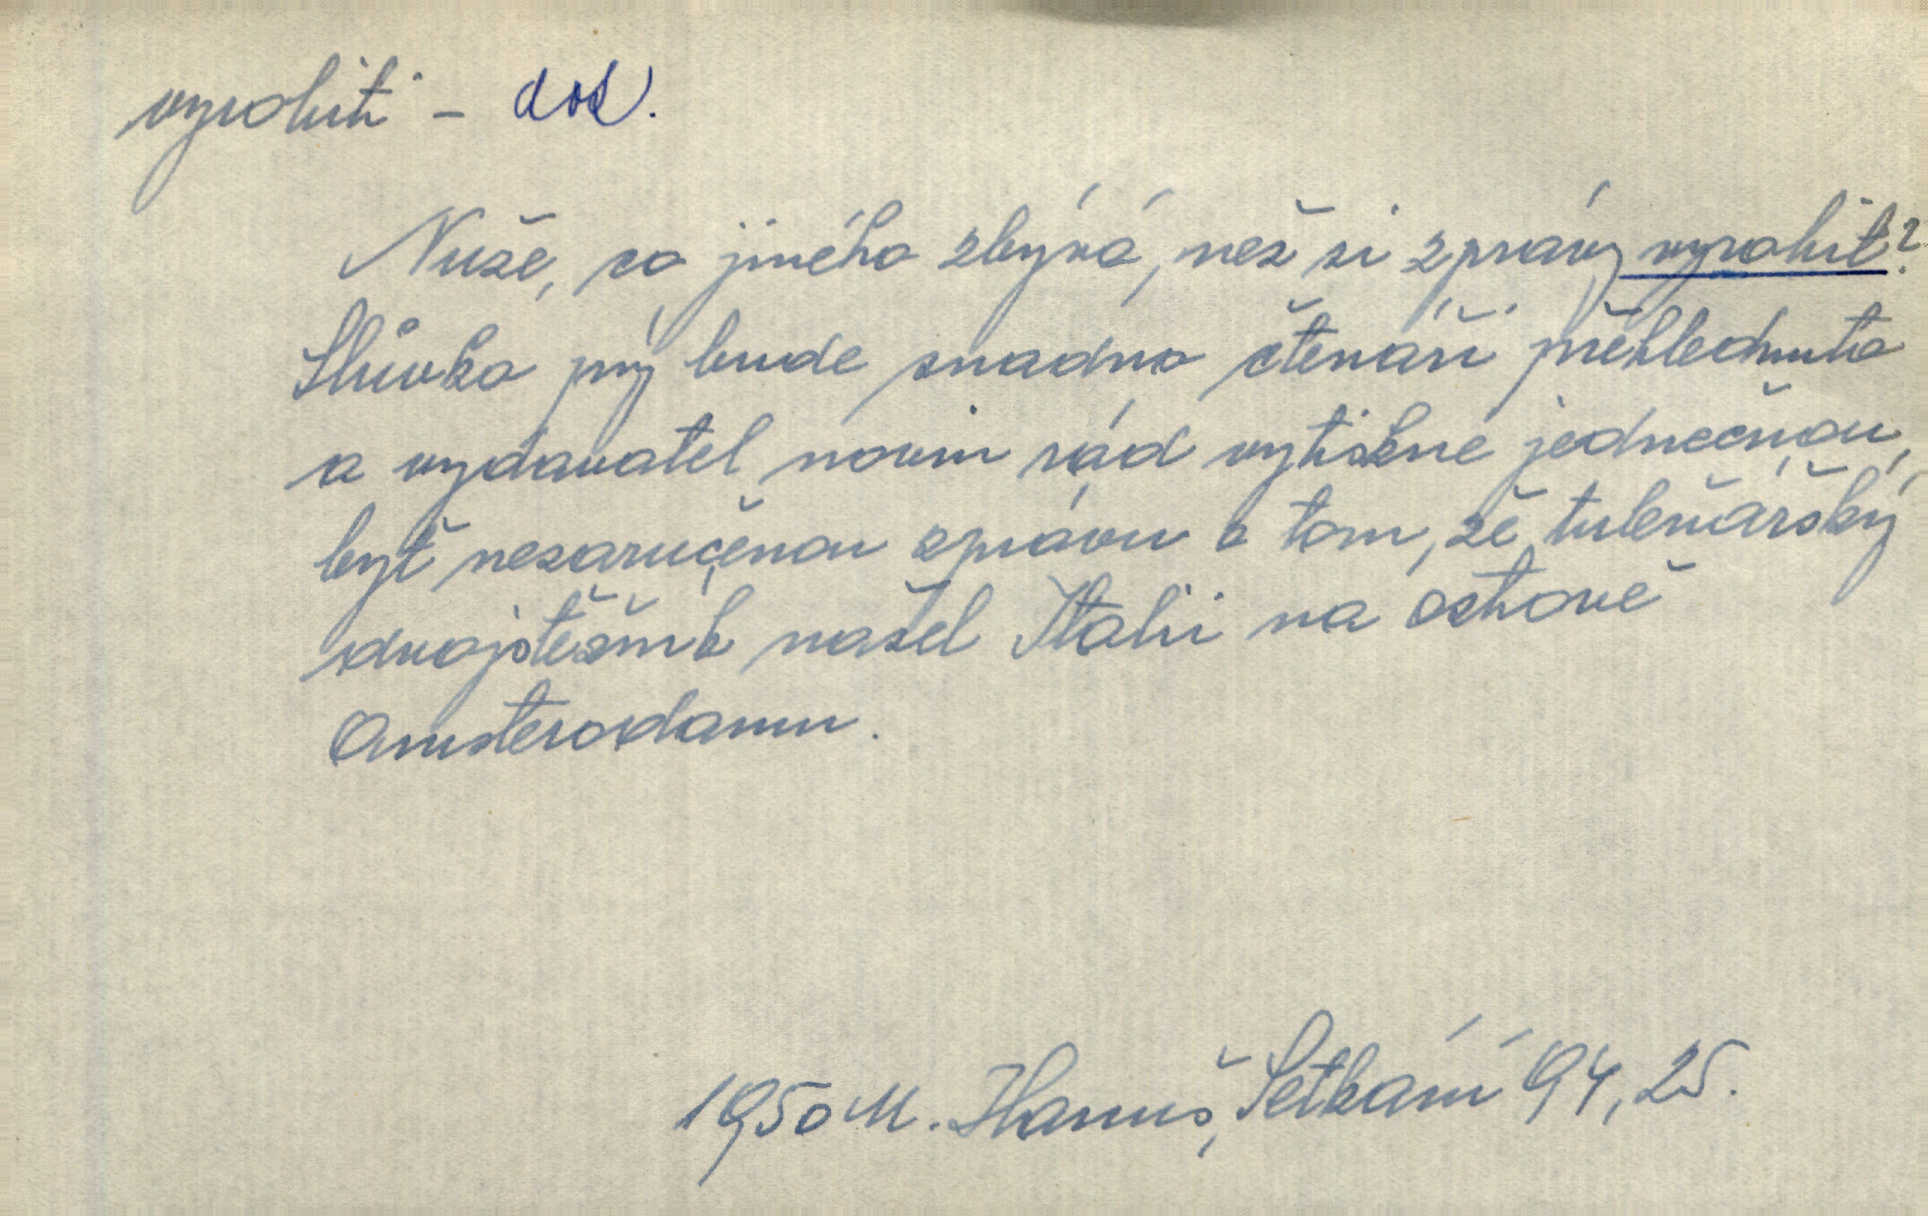 vyrobiti - dok.
Nuže, co jiného zbývá, než si zprávy vyrobit?
Slůvko prý bude snadno čtenáři přehlednuto
a vydavatel novin rád vytiskne jedinečnou,
byť nezaručenou zprávu o tom, že tuleňářský
dvojstěžník našel Italii na ostrově
Amsterodamu.
1950 M. Hanuš, Setkání 94, 25.